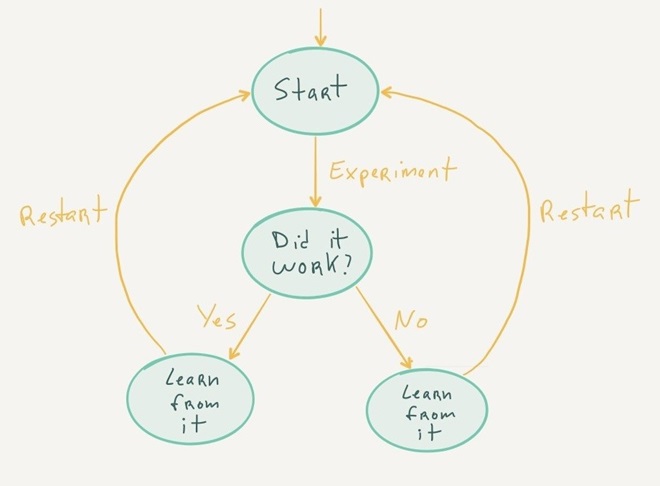 Start
Experiment
Restart
Restart
Did it
work?
Yes
No
Learn
from
it
Learn
from
it